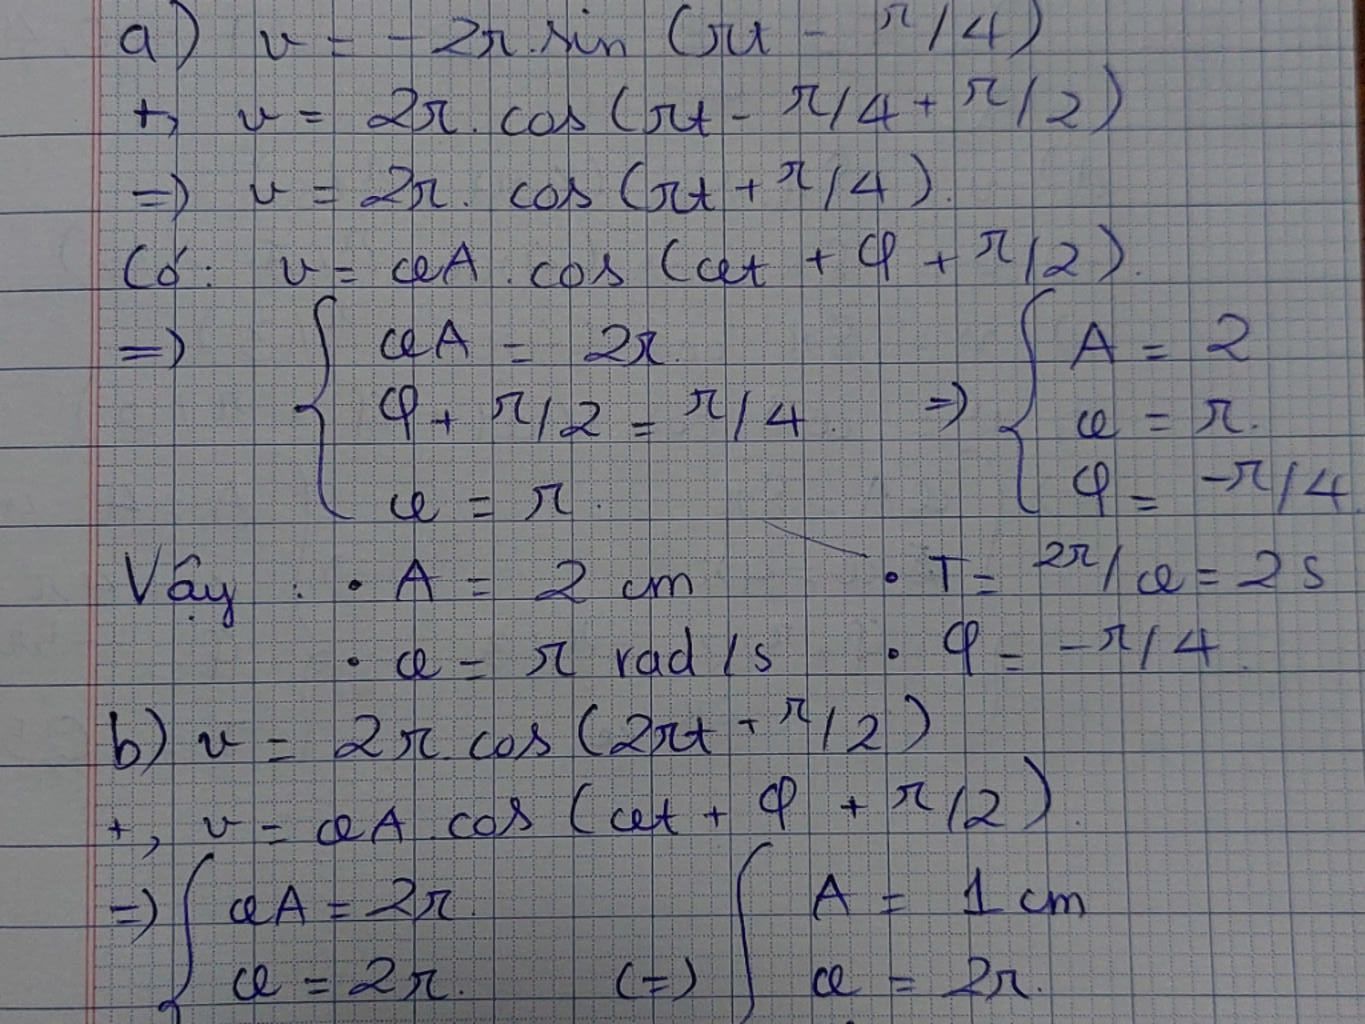 a) v = - 2π.sin (πt - π/4)
+, v = 2π. cos (πt - π/4 + π/2)
=> v = 2π. cos (πt + π/4).
Có: v = ωA . cos (ωt + φ + π/2).
=> { ωA = 2π. => { A = 2
φ + π/2 = π/4. ω = π.
ω = π. φ = -π/4.
Vậy : • A = 2 cm • T = 2π/ω = 2 s
• ω = π rad/s • φ = -π/4.
b) v = 2π.cos (2πt + π/2)
+, v = ωA.cos (ωt + φ + π/2).
=> { ωA = 2π. { A = 1 cm
ω = 2π. (=) ω = 2π.